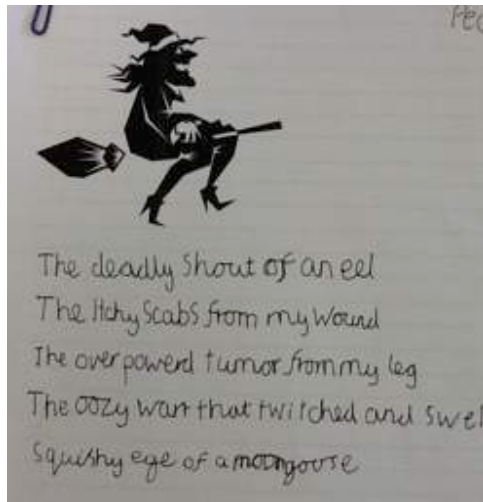 The deadly Shout of an eel
The Itchy Scabs from my wound
The over powerd tumor from my leg
The oozy wart that twitched and swel
Squishy eye of a moongouse